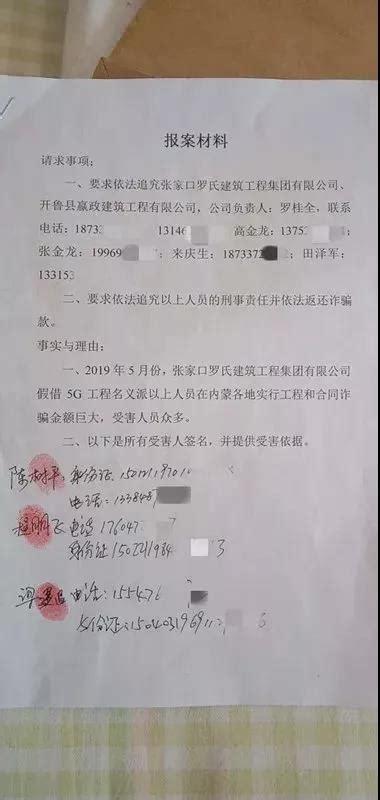 报案材料
请求事项：
一、要求依法追究张家口罗氏建筑工程集团有限公司、
开鲁县嬴政建筑工程有限公司，公司负责人：罗桂全，联系
电话：1873 13146 高金龙：1375
张金龙：19969 来庆生：187337 田泽军：
133153
二、要求依法追究以上人员的刑事责任并依法返还诈骗
款。
事实与理由：
一、2019 年 5 月份，张家口罗氏建筑工程集团有限公司
假借 5G 工程名义派以上人员在内蒙各地实行工程和合同诈
骗金额巨大，受害人员众多。
二、以下是所有受害人签名，并提供受害依据。
陈树平：身份证：
电话：133848
明飞 电话 176047 7
身份证 3
电话：155476
身份证： 6